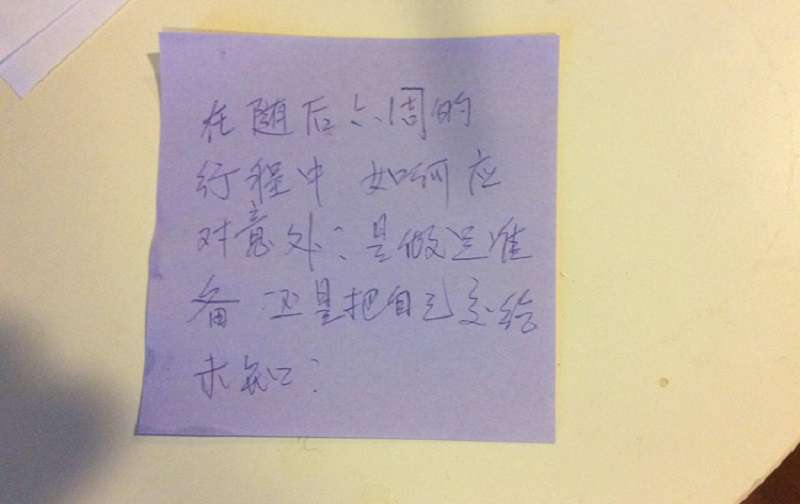 在随后六周的
行程中 如何应
对意外？是做足准
备 还是把自己交给
未知？